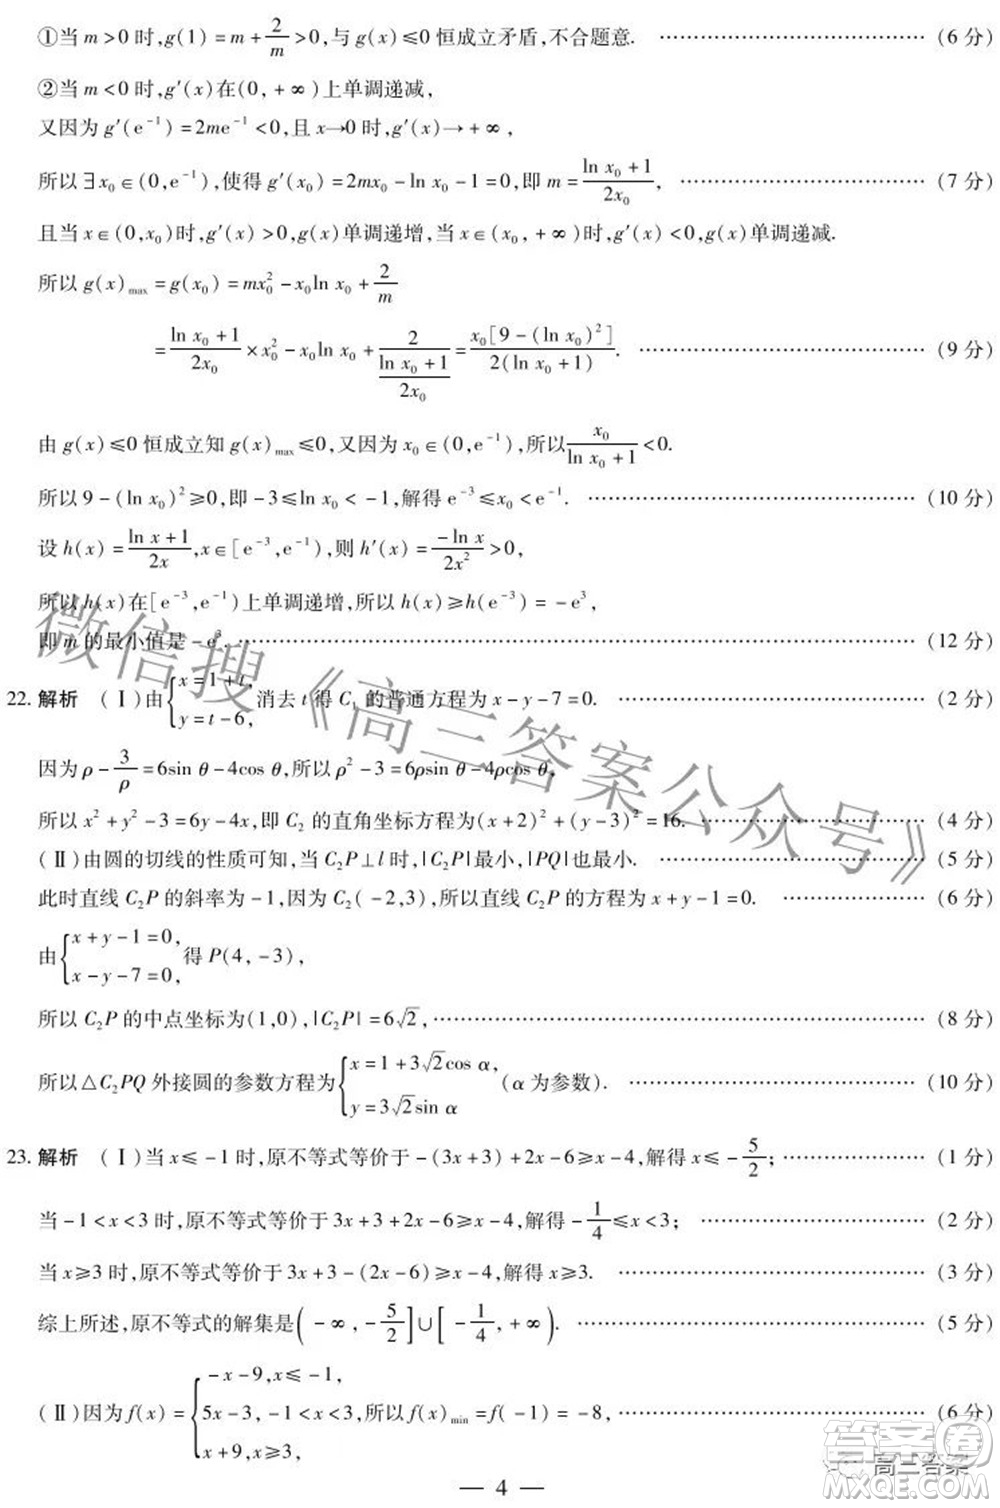 ①当 m>0 时,g(1)=m+2/m>0,与 g(x)≤0 恒成立矛盾,不合题意. ……………………………… (6 分)
②当 m<0 时,g′(x)在(0,+∞)上单调递减,
又因为 g′(e⁻¹)=2me⁻¹<0,且 x→0 时,g′(x)→+∞,
所以∃x₀∈(0,e⁻¹),使得 g′(x₀)=2mx₀-ln x₀-1=0,即 m=(ln x₀+1)/(2x₀), ……………………………… (7 分)
且当 x∈(0,x₀)时,g′(x)>0,g(x)单调递增,当 x∈(x₀,+∞)时,g′(x)<0,g(x)单调递减.
所以 g(x)max=g(x₀)=mx₀²-x₀ln x₀+2/m
=(ln x₀+1)/(2x₀)×x₀²-x₀ln x₀+2/((ln x₀+1)/(2x₀))=x₀[9-(ln x₀)²]/(2(ln x₀+1)). ……………………………… (9 分)
由 g(x)≤0 恒成立知 g(x)max≤0,又因为 x₀∈(0,e⁻¹),所以x₀/(ln x₀+1)<0.
所以 9-(ln x₀)²≥0,即-3≤ln x₀<-1,解得 e⁻³≤x₀<e⁻¹. ……………………………… (10 分)
设 h(x)=(ln x+1)/(2x),x∈[e⁻³,e⁻¹),则 h′(x)=(-ln x)/(2x²)>0,
所以 h(x)在[e⁻³,e⁻¹)上单调递增,所以 h(x)≥h(e⁻³)=-e³,
即 m 的最小值是-e³. ……………………………… (12 分)
22. 解析 (Ⅰ)由{x=1+t, y=t-6,消去 t 得 C₁ 的普通方程为 x-y-7=0. ……………………………… (2 分)
因为 ρ-3/ρ=6sin θ-4cos θ,所以 ρ²-3=6ρsin θ-4ρcos θ,
所以 x²+y²-3=6y-4x,即 C₂ 的直角坐标方程为(x+2)²+(y-3)²=16. ……………………………… (4 分)
(Ⅱ)由圆的切线的性质可知,当 C₂P⊥l 时,|C₂P|最小,|PQ|也最小. ……………………………… (5 分)
此时直线 C₂P 的斜率为-1,因为 C₂(-2,3),所以直线 C₂P 的方程为 x+y-1=0. ……………………………… (6 分)
由{x+y-1=0, x-y-7=0,得 P(4,-3),
所以 C₂P 的中点坐标为(1,0),|C₂P|=6√2, ……………………………… (8 分)
所以△C₂PQ 外接圆的参数方程为{x=1+3√2cos α, y=3√2sin α (α 为参数). ……………………………… (10 分)
23. 解析 (Ⅰ)当 x≤-1 时,原不等式等价于-(3x+3)+2x-6≥x-4,解得 x≤-5/2; ……………………………… (1 分)
当-1<x<3 时,原不等式等价于 3x+3+2x-6≥x-4,解得-1/4≤x<3; ……………………………… (2 分)
当 x≥3 时,原不等式等价于 3x+3-(2x-6)≥x-4,解得 x≥3. ……………………………… (3 分)
综上所述,原不等式的解集是(-∞,-5/2]∪[-1/4,+∞). ……………………………… (5 分)
(Ⅱ)因为 f(x)={-x-9,x≤-1, 5x-3,-1<x<3, x+9,x≥3,所以 f(x)min=f(-1)=-8, ……………………………… (6 分)
— 4 —
微信搜《高三答案公众号》
高三答案
答案圈
MXQE.COM